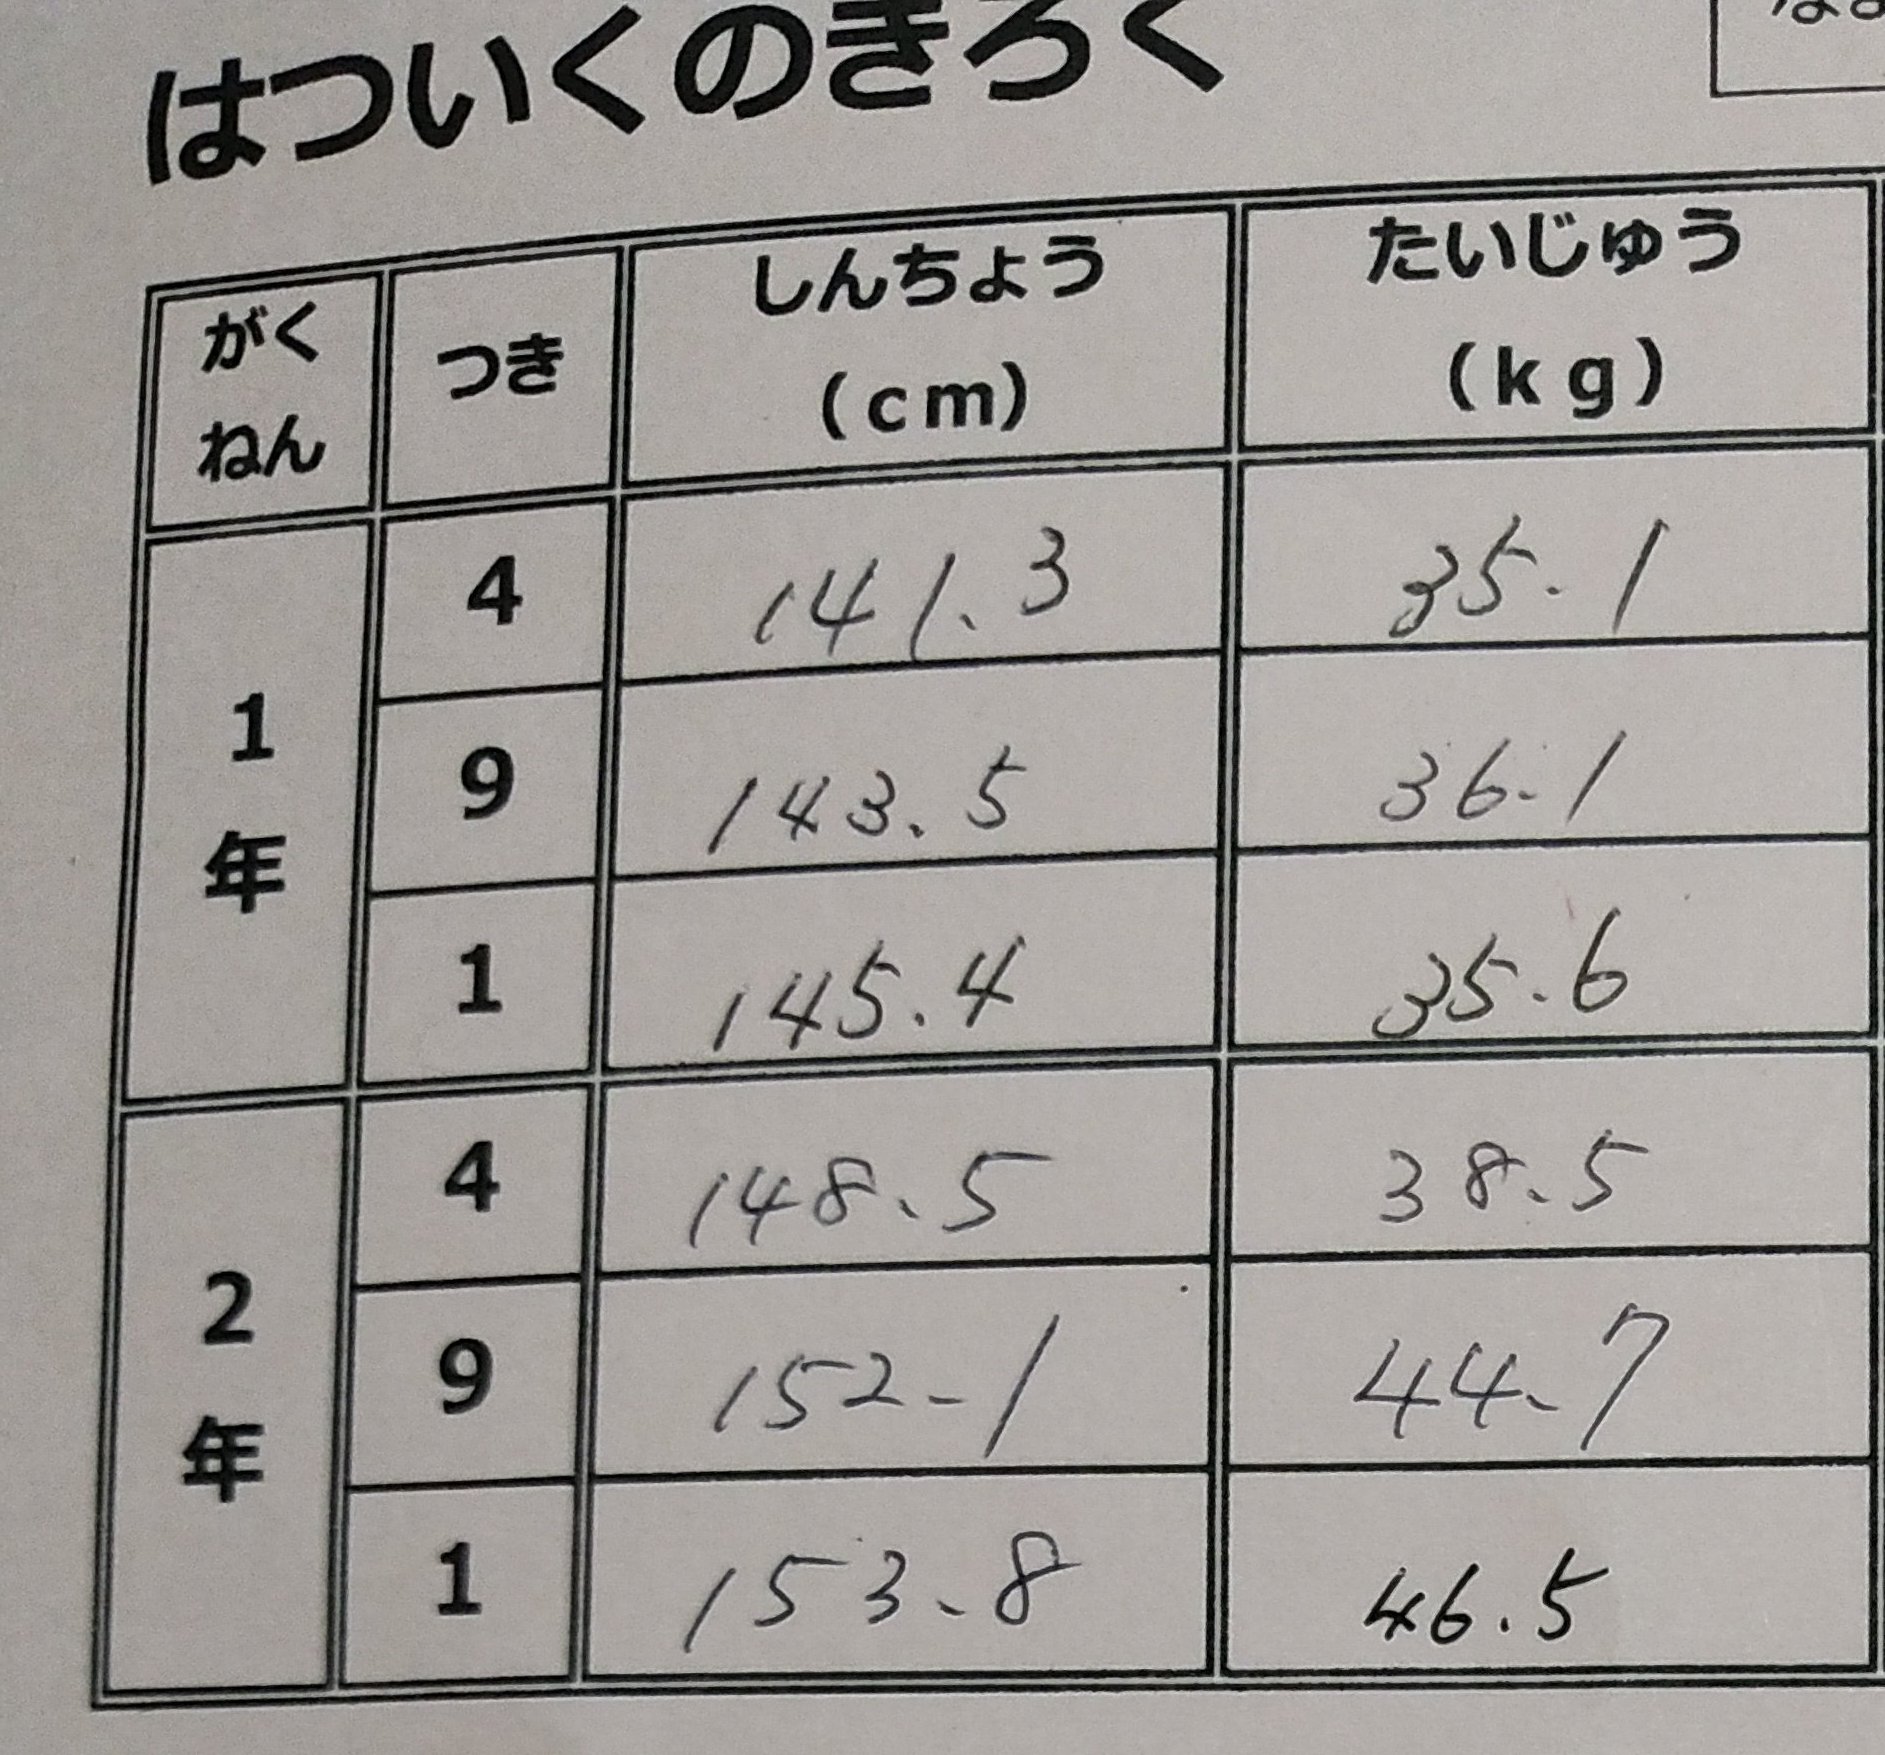 はついくのきろく
がく
ねん
つき
しんちょう
(cm)
たいじゅう
(kg)
1
年
4 141.3 35.1
9 143.5 36.1
1 145.4 35.6
2
年
4 148.5 38.5
9 152.1 44.7
1 153.8 46.5